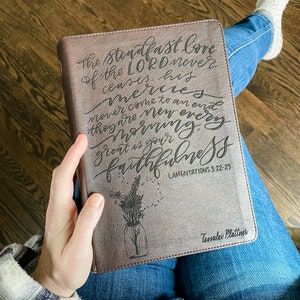 The steadfast love
of the LORD never
ceases, his
mercies
never come to an end
they are new every
morning,
great is your
faithfulness
LAMENTATIONS 3:22-23